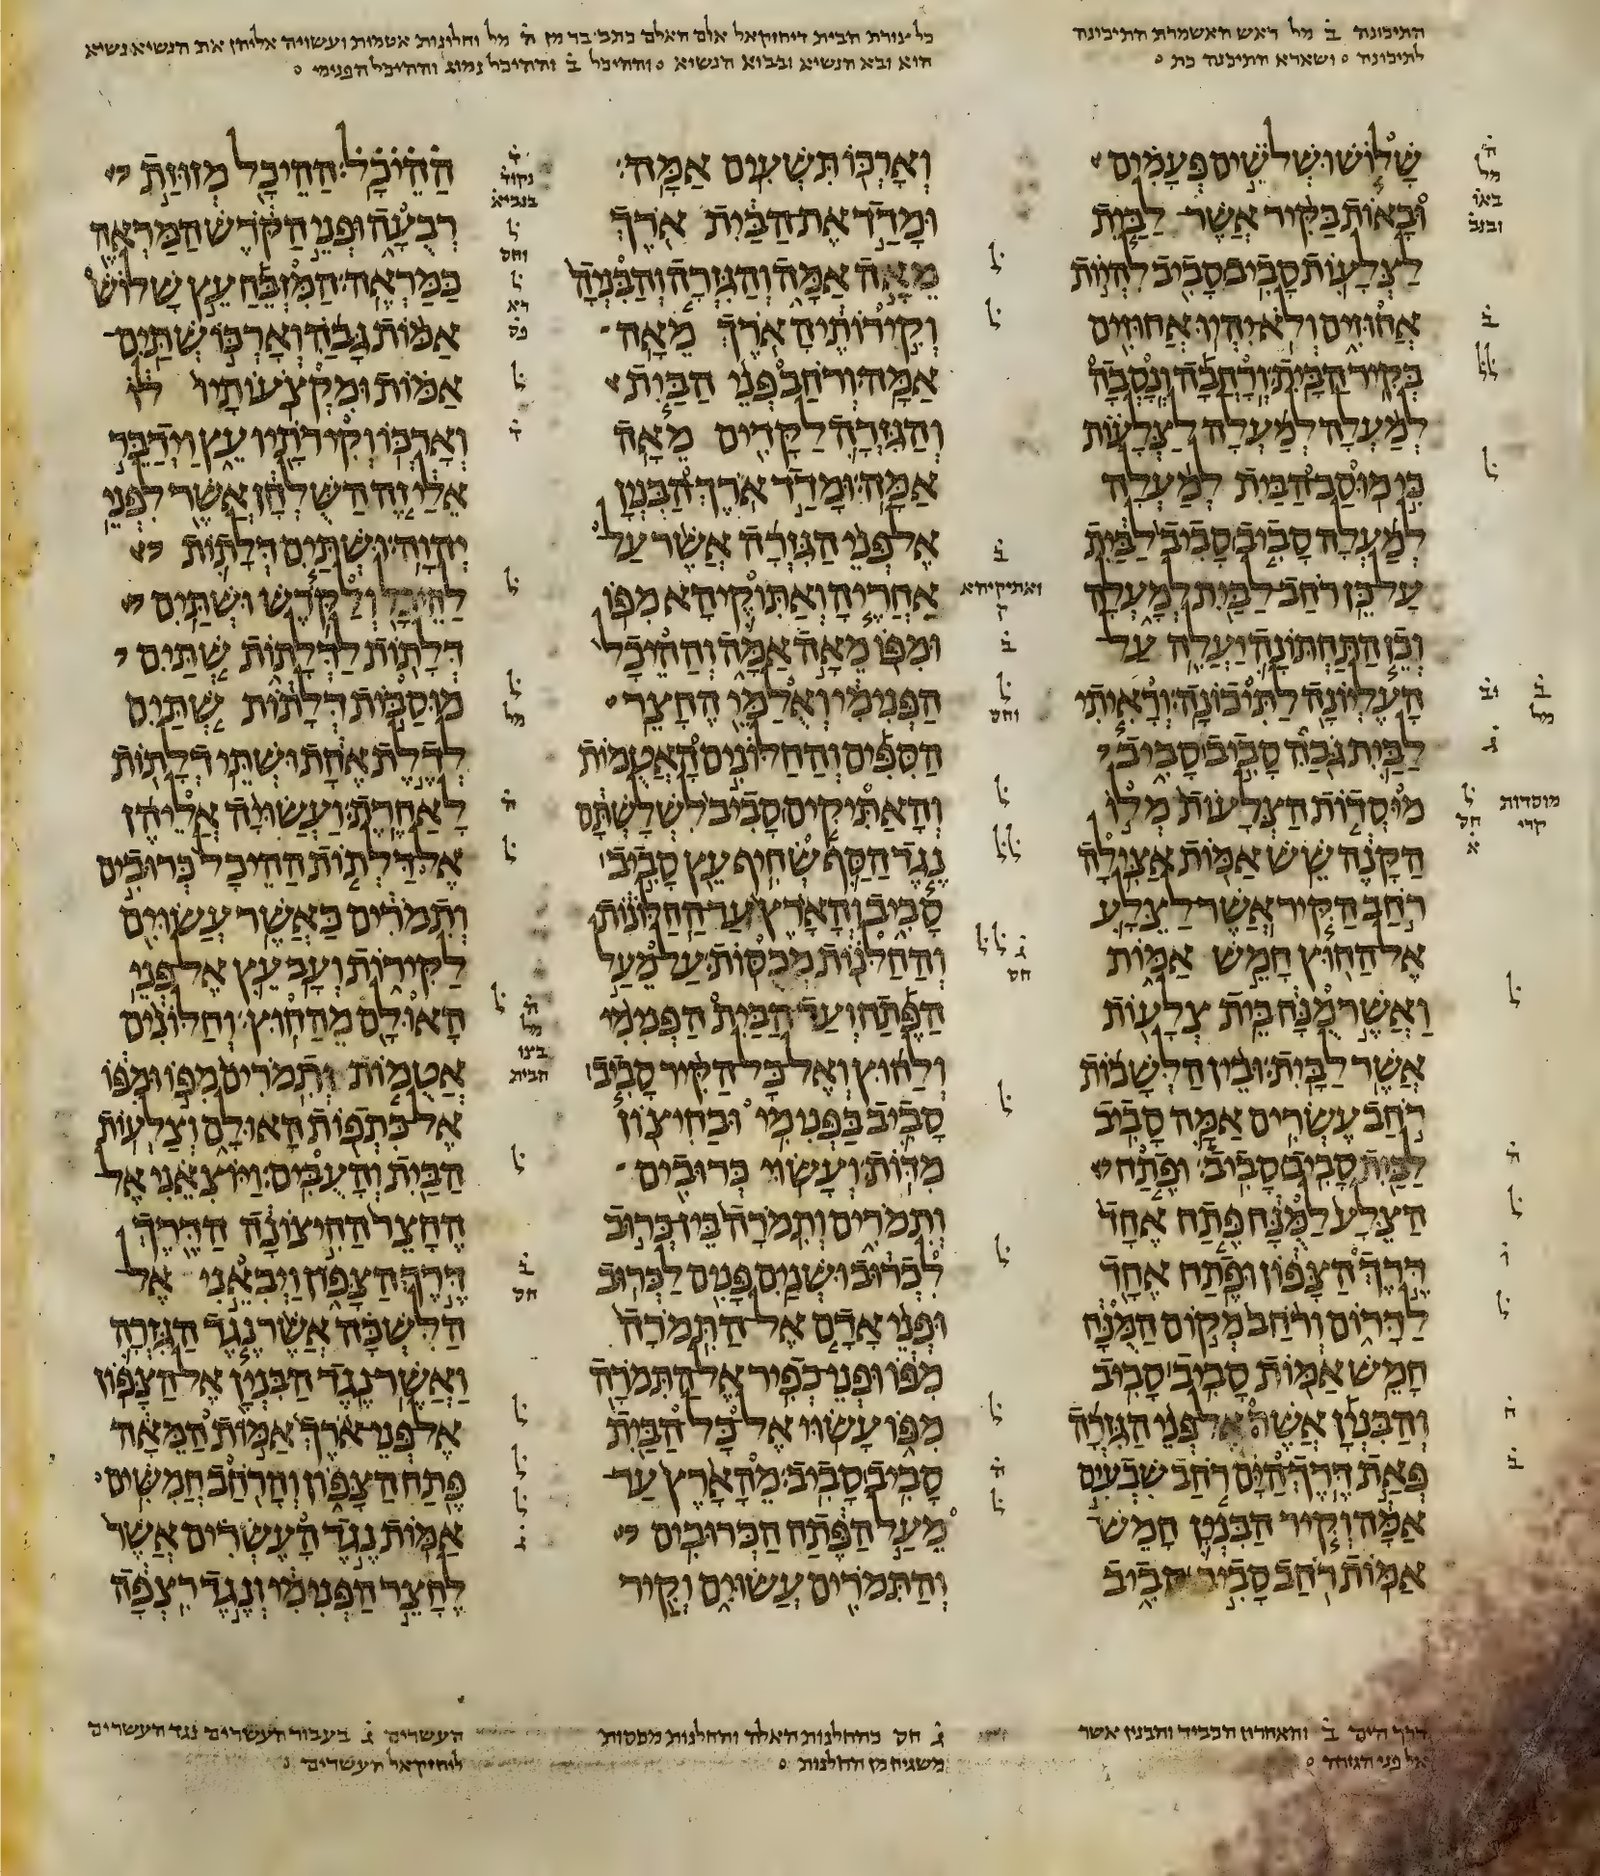 התיכונה ב מל ראש האשמרת התיכונה
לתיכונה ושארא התיכנה כת
כל צורת הבית דיחזקאל אולם האלם כתב בר מן ה מל וחלונות אטמות ועשויה אליהן את הנשיא נשיא
הוא ובא הנשיא ובבוא הנשיא וההיכל ב וההיכל נמוג וההיכל הפנימי
שלוש ושלשים פעמים
ובאות בקיר אשר לבית
לצלעות סביב סביב להיות
אחוזים ולא יהיו אחוזים
בקיר הבית ורחבה ונסבה
למעלה למעלה לצלעות
כי מוסב הבית למעלה
למעלה סביב סביב לבית
על כן רחב לבית למעלה
וכן התחתונה יעלה על
העליונה לתיכונה וראיתי
לבית גבה סביב סביב
מוסדות הצלעות מלו
הקנה שש אמות אצילה
רחב הקיר אשר לצלע
אל החוץ חמש אמות
ואשר מנח בית צלעות
אשר לבית ובין הלשכות
רחב עשרים אמה סביב
לבית סביב סביב ופתח
הצלע למנח פתח אחד
דרך הצפון ופתח אחד
לדרום ורחב מקום המנח
חמש אמות סביב סביב
והבנין אשר אל פני הגזרה
פאת דרך הים רחב שבעים
אמה וקיר הבנין חמש
אמות רחב סביב סביב
וארכו תשעים אמה
ומדד את הבית ארך
מאה אמה והגזרה והבניה
וקירותיה ארך מאה
אמה ורחב פני הבית
והגזרה לקדים מאה
אמה ומדד ארך הבנין
אל פני הגזרה אשר על
אחריה ואתוקיהא מפו
ומפו מאה אמה וההיכל
הפנימי ואלמי החצר
הספים והחלונים האטמות
והאתיקים סביב לשלשתם
נגד הסף שחיף עץ סביב
סביב והארץ עד החלנות
והחלנות מכסות על מעל
הפתח ועד הבית הפנימי
ולחוץ ואל כל הקיר סביב
סביב בפנימי ובחיצון
מדות ועשוי כרובים
ותמרים ותמרה בין כרוב
לכרוב ושנים פנים לכרוב
ופני אדם אל התמרה
מפו ופני כפיר אל התמרה
מפו עשוי אל כל הבית
סביב סביב מהארץ עד
מעל הפתח הכרובים
והתמרים עשוים וקיר
ההיכל ההיכל מזוזת
רבעה ופני הקדש המראה
כמראה המזבח עץ שלוש
אמות גבה וארכו שתים
אמות ומקצעותיו לו
וארכו וקירתיו עץ וידבר
אלי זה השלחן אשר לפני
יהוה ושתים דלתות
להיכל ולקדש ושתים
דלתות לדלתות שתים
מוסבות דלתות שתים
לדלת אחת ושתי דלתות
לאחרת ועשויה אליהן
אל דלתות ההיכל כרובים
ותמרים כאשר עשוים
לקירות ועב עץ אל פני
האולם מהחוץ וחלונים
אטמות ותמרים מפו ומפו
אל כתפות האולם וצלעות
הבית והעבים ויוצאני אל
החצר החיצונה הדרך
דרך הצפון ויבאני אל
הלשכה אשר נגד הגזרה
ואשר נגד הבנין אל הצפון
אל פני ארך אמות המאה
פתח הצפון והרחב חמשים
אמות נגד העשרים אשר
לחצר הפנימי ונגד רצפה
דרך הים ב והאחרון הכביד והבנין אשר
אל פני הגזרה
ג חס בהחלנות האלה והחלנות מכסות
משגיח מן החלנות
העשרים ג בעבור העשרים נגד העשרים
ליחזקאל העשרים